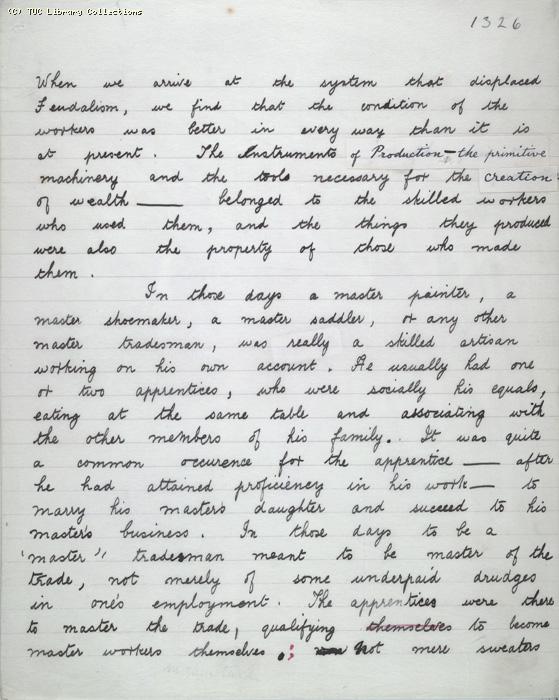 (C) TUC Library Collections
1326
When we arrive at the system that displaced
Feudalism, we find that the condition of the
workers was better in every way than it is
at present. The Instruments of Production – the primitive
machinery and the tools necessary for the creation
of wealth — belonged to the skilled workers
who used them, and the things they produced
were also the property of those who made
them.
In those days a master painter, a
master shoemaker, a master saddler, or any other
master tradesman, was really a skilled artisan
working on his own account. He usually had one
or two apprentices, who were socially his equals,
eating at the same table and associating with
the other members of his family. It was quite
a common occurence for the apprentice — after
he had attained proficiency in his work — to
marry his master's daughter and succeed to his
master's business. In those days to be a
'master' tradesman meant to be master of the
trade, not merely of some underpaid drudges
in one's employment. The apprentices were there
to master the trade, qualifying themselves to become
master workers themselves; not mere sweaters